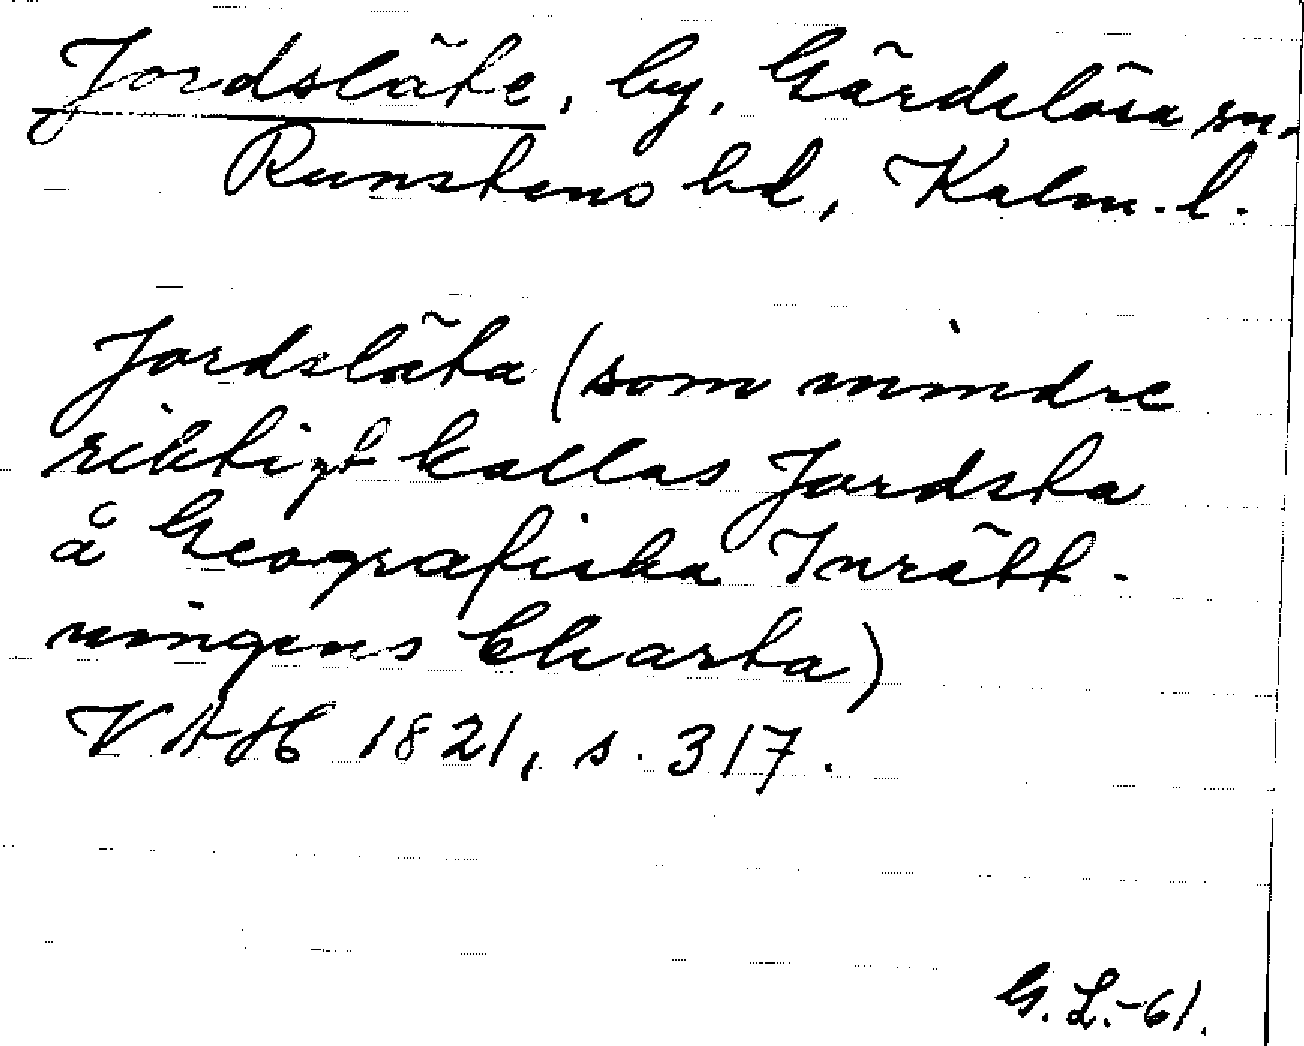 Jordsläte, by, Gärdslösa sn.
Runstens hd, Kalm. l.
Jordsläta (som mindre
riktigt kallas Jordsta
å Geografiska Inrätt-
ningens Charta)
VAH 1821, s. 317.
G. L. -61.